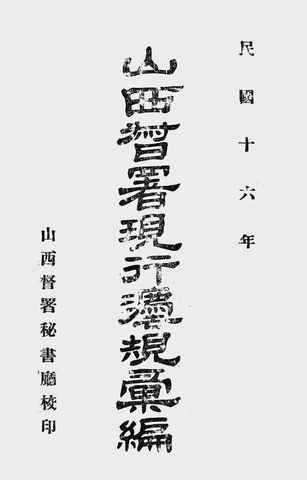 民國十六年
山西督署現行灋規彙編
山西督署秘書廳校印